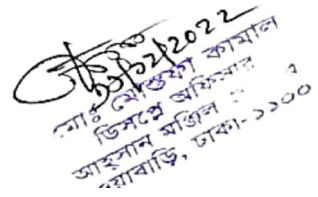 30/12/2022
মোঃ মোস্তফা কামাল
ডিসপ্লে অফিসার
আহসান মঞ্জিল
ঢাকা-১১০০